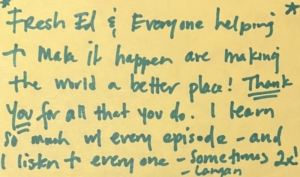 * Fresh Ed & Everyone helping *
t Make it happen are making
the world a better place! Thank
You for all that you do. I learn
so much w/ every episode - and
I listen t every one - Sometimes 2x!